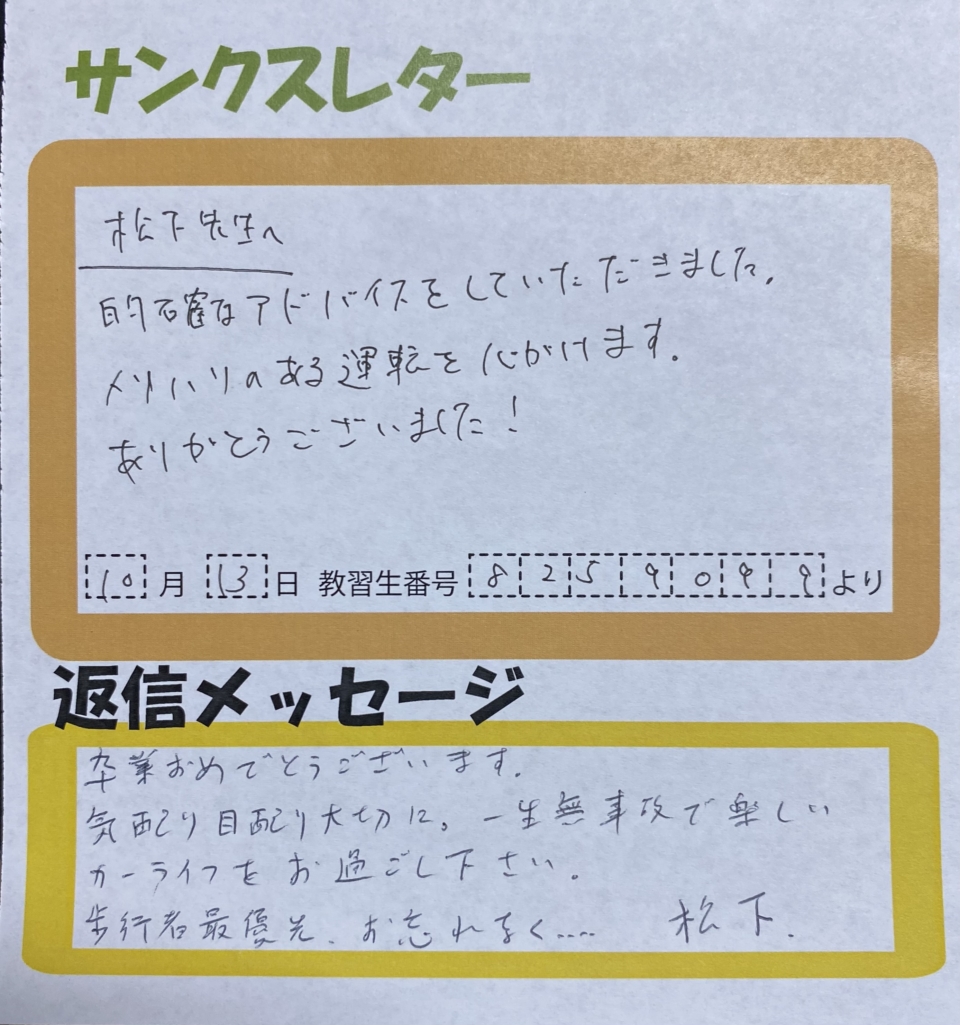 サンクスレター
松下先生へ
的確なアドバイスをしていただきました。
メリハリのある運転を心がけます。
ありがとうございました！
10月 13日 教習生番号 8259099より
返信メッセージ
卒業おめでとうございます。
気配り目配り大切に。一生無事故で楽しい
カーライフをお過ごし下さい。
歩行者最優先、お忘れなく…… 松下.